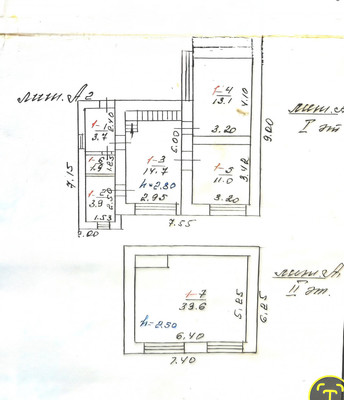 лит. А2
1-1
3.7
2.40
1.25
1-2
3.9
2.50
1.53
2.00
7.15
1-3
14.7
h=2.80
2.95
6.00
7.55
1-4
13.1
4.10
3.20
1-5
11.0
3.42
3.20
9.00
I эт
1-7
33.6
h=2.50
6.40
5.25
7.40
6.25
лит. А
II эт.